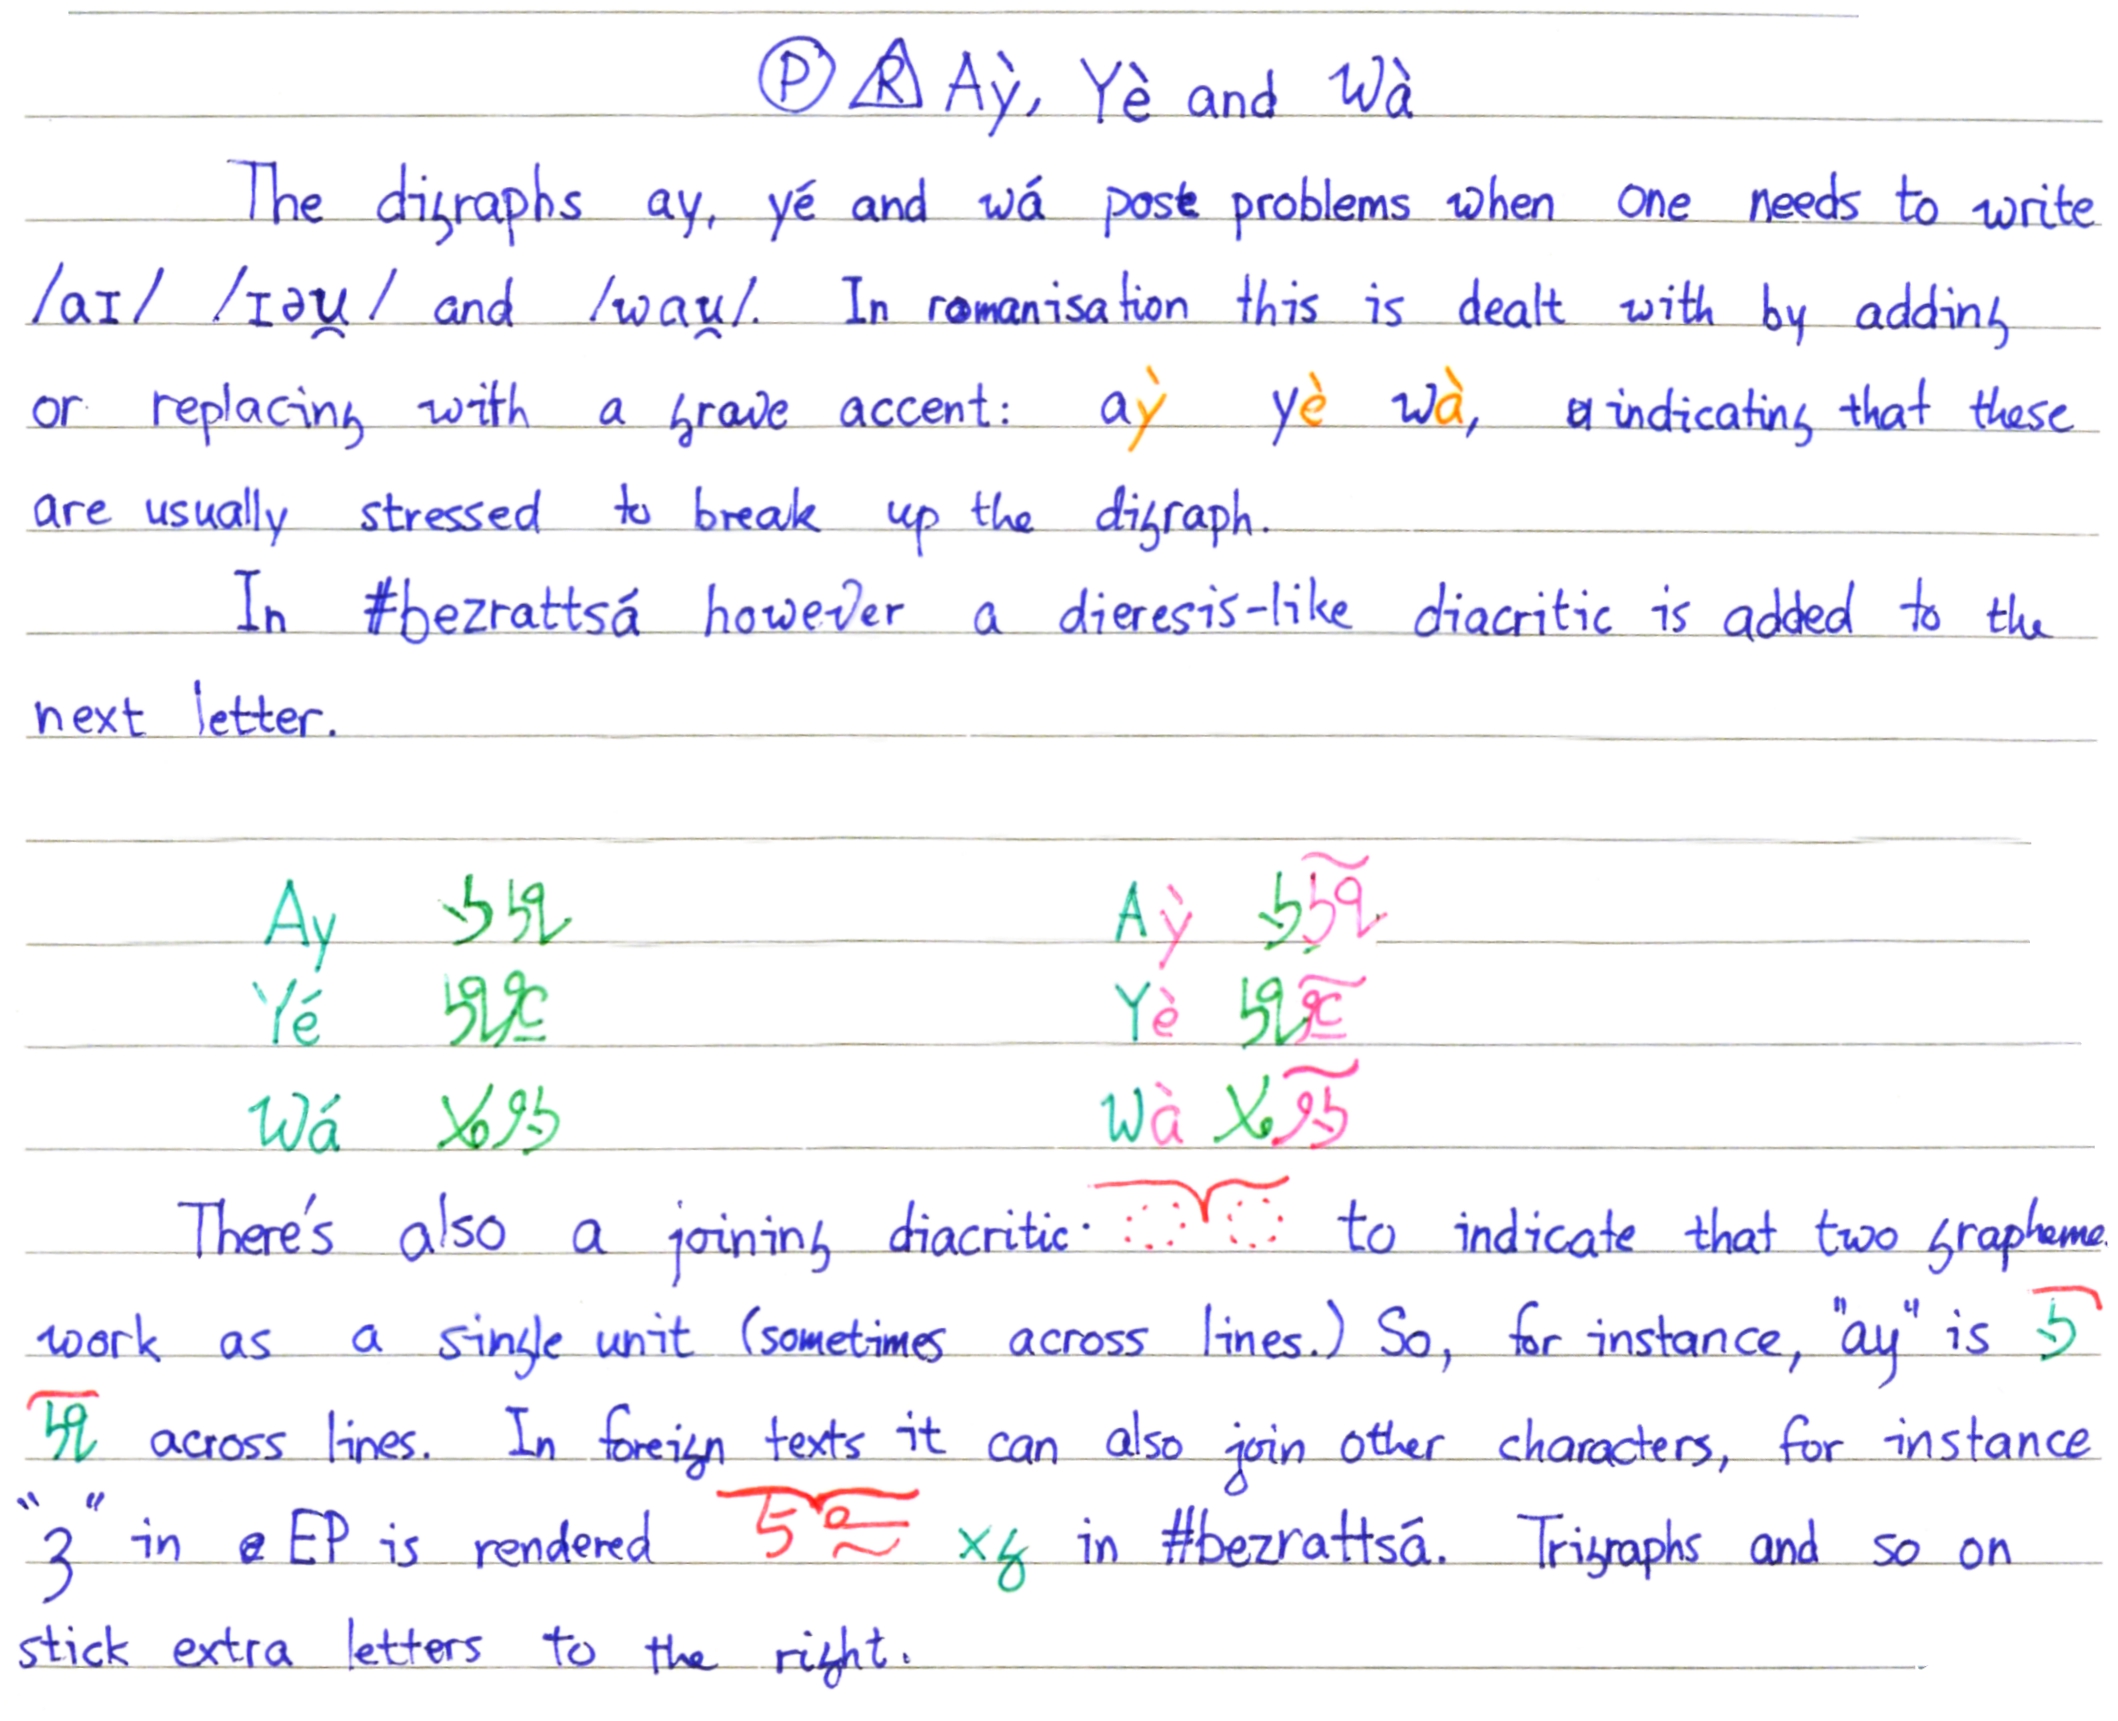 Ⓟ R Aỳ, Yè and Wà
The digraphs ay, yé and wá pose problems when one needs to write
/aɪ/ /ɪəu̯/ and /wau̯/. In romanisation this is dealt with by adding
or replacing with a grave accent: aỳ yè wà, indicating that these
are usually stressed to break up the digraph.
In #bezrattsá however a dieresis-like diacritic is added to the
next letter.
Ay Aỳ
Yé Yè
Wá Wà
There's also a joining diacritic to indicate that two grapheme
work as a single unit (sometimes across lines.) So, for instance, "ay" is
across lines. In foreign texts it can also join other characters, for instance
"ʒ" in EP is rendered in #bezrattsá. Trigraphs and so on
stick extra letters to the right.